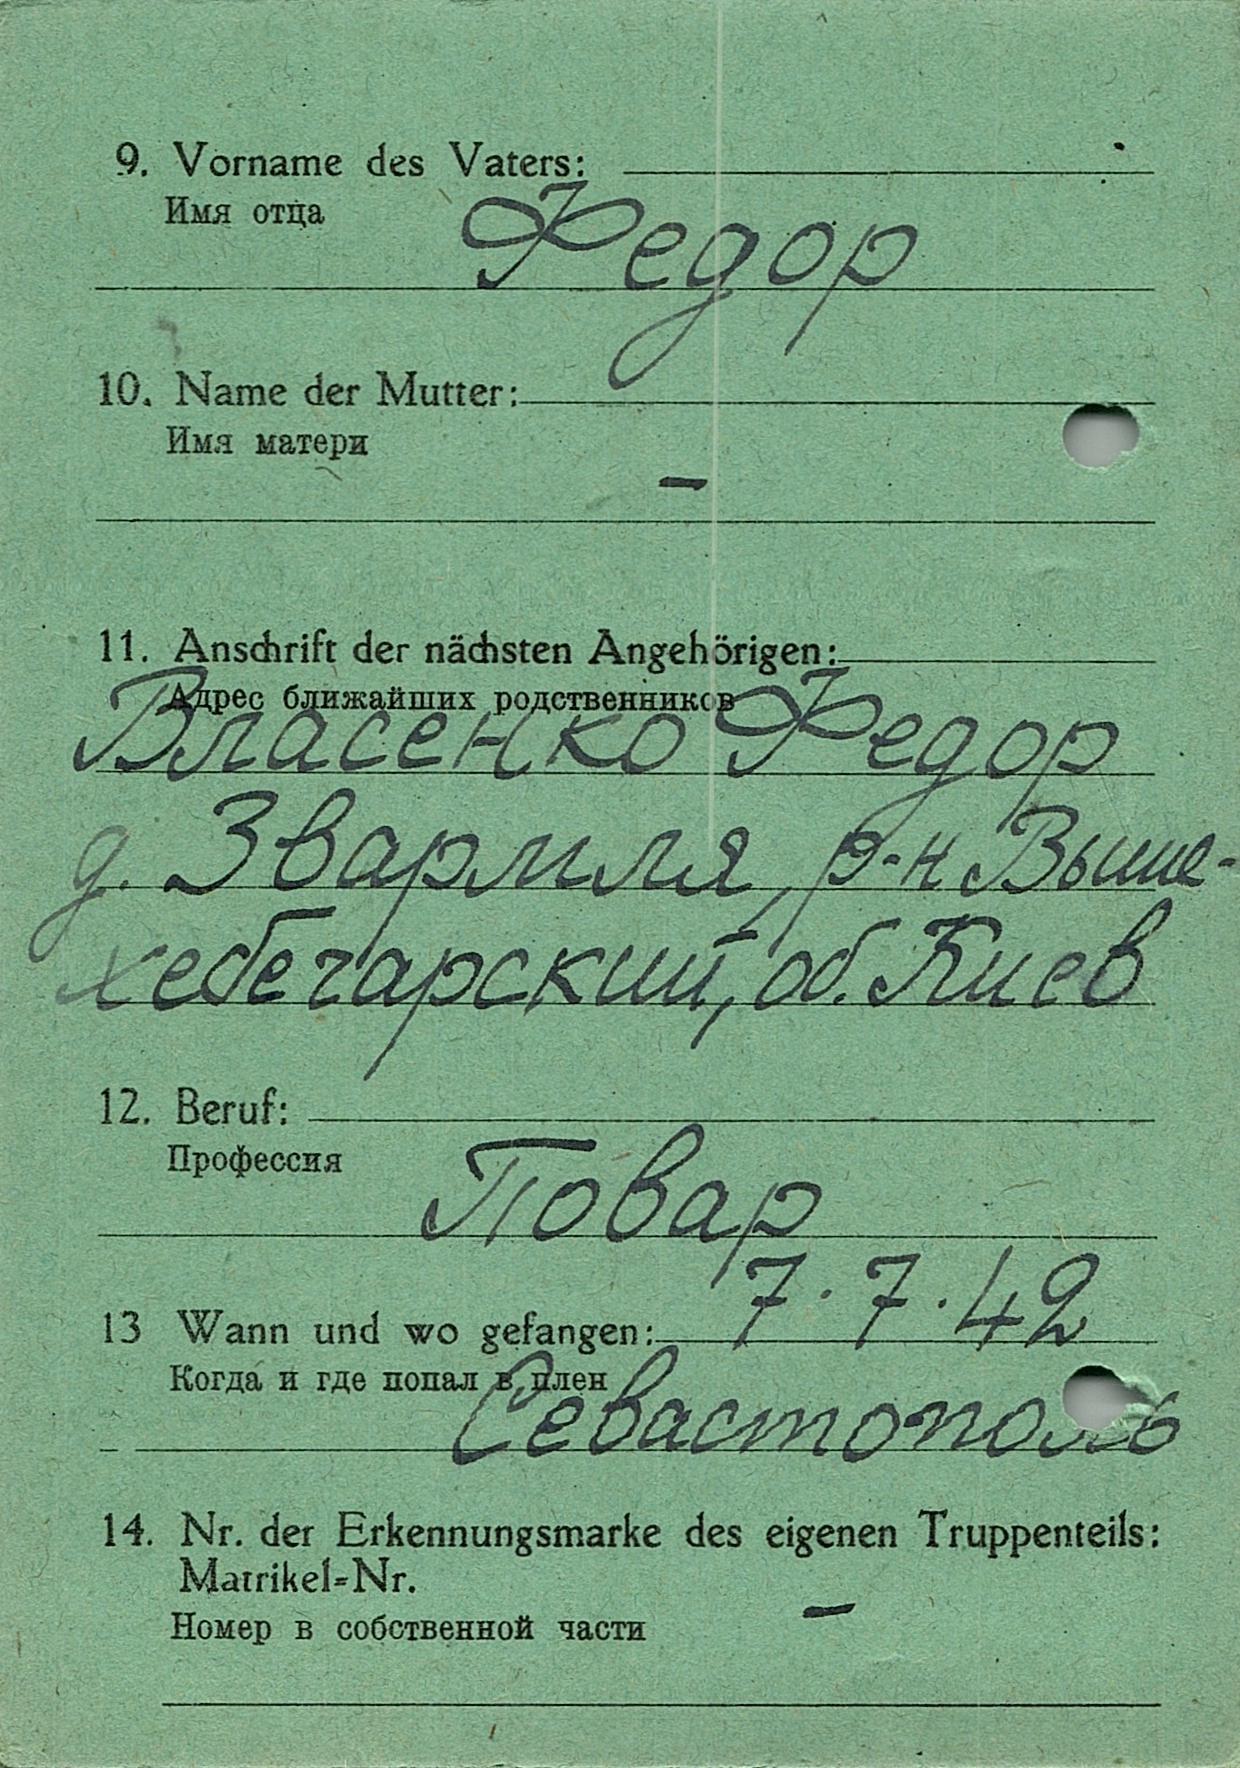 9. Vorname des Vaters:
Имя отца
Федор
10. Name der Mutter:
Имя матери
-
11. Anschrift der nächsten Angehörigen:
Адрес ближайших родственников
Власенко Федор
д. Звармля, р-н Выше-
хебегарский, об. Киев
12. Beruf:
Профессия
Повар
7.7.42
13 Wann und wo gefangen:
Когда и где попал в плен
Севастополь
14. Nr. der Erkennungsmarke des eigenen Truppenteils:
Matrikel=Nr.
Номер в собственной части
-